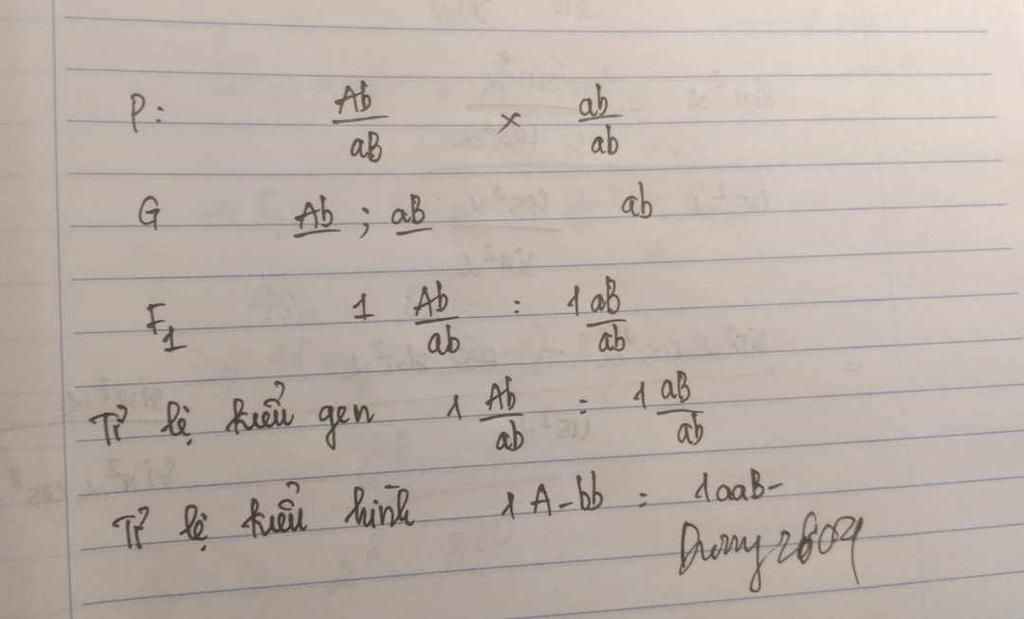 P: Ab/aB × ab/ab
G Ab ; aB ab
F1 1 Ab/ab : 1 aB/ab
Tỉ lệ kiểu gen 1 Ab/ab : 1 aB/ab
Tỉ lệ kiểu hình 1 A-bb : 1aaB-